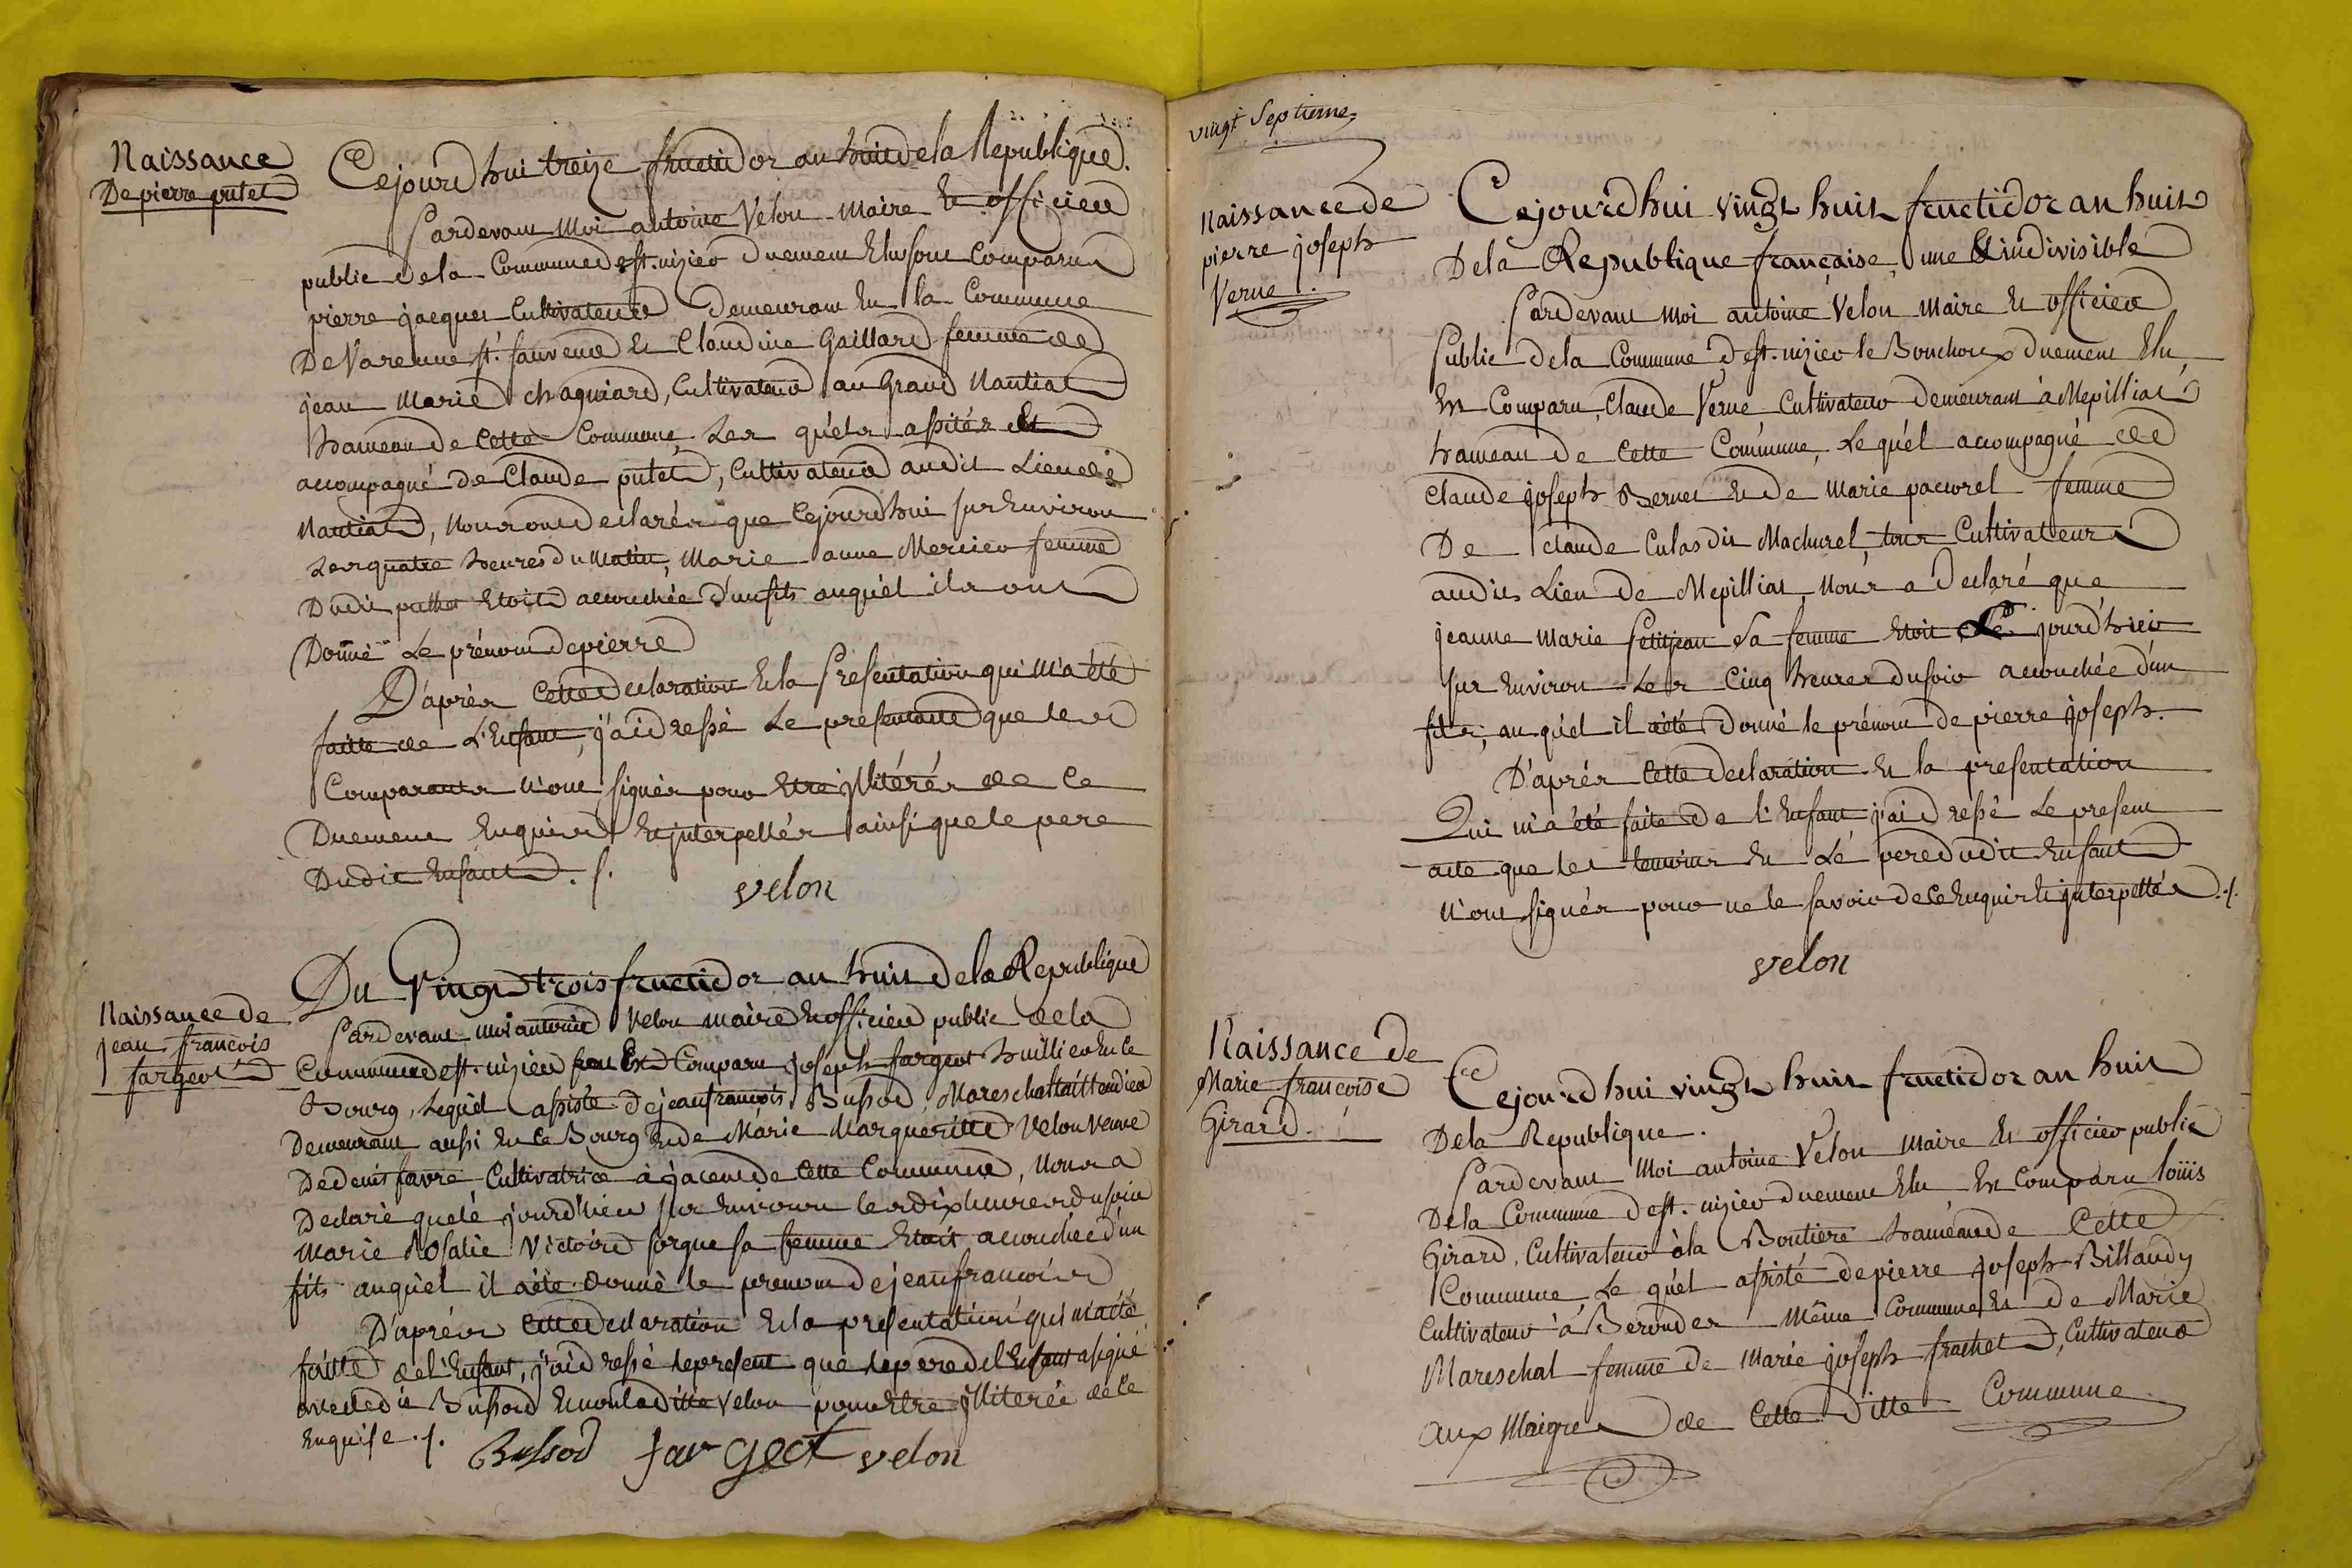 Naissance
De pierre putet
Cejourd hui treize fructidor an huit de la Republique.
Pardevant Moi antoine Velon Maire Et officier
public de la Commune de st. nizier duement Elu sont Comparus
pierre jacques Cultivateur Demeurant En la Commune
De Varenne st. sauveur Et Claudine Gaillard femme de
jean Marie chagniard, Cultivateur au Grand Nantiat
hameau de Cette Commune Les quels assités Et
accompagné de Claude putet, Cultivateur audit Lieu de
Nantiat, Nous ont Declarés que Cejourd hui sur Environ
Les quatre heures du Matin, Marie anne Mercier femme
Dudit puthet Etoit accouchée d'un fils auquel ils ont
Donné Le prénom de pierre
D'aprés Cette Declaration Et la Presentation qui m'a été
faitte de L'Enfant, j'ai dressé Le present acte que les
Comparants n'ont signés pour Etre jllitérés de Ce
Duement Enquis Et jnterpellés ainsi que le pere
Dudit Enfant. /.
velon
Naissance de
jean francois
fargeot
Du Vingt trois fructidor an huit de la Republique
Pardevant moi antoine Velon maire Et officier public de la
Commune de st. nizier Est Comparu joseph fargeot huillier En Ce
Bourg, Lequel assisté de jean francois Bussod, Mareschal taillandier
Demeurant aussi En Ce Bourg Et de Marie Marguéritte Velon Veuve
De denis favre Cultivatrice à de Cette Commune, Nous a
Declaré que lé jourd'hier sur Environ les dix heures du soir
Marie Rosalie Victoire sorgue sa femme Etoit accouchée d'un
fils auquel il a été donné le prenom de jean francois
D'aprés Cette Declaration Et la presentation qui m'a été
faitte de l'Enfant, j'ai dressé le present que le pere de l'Enfant a signé
avec ledit Bussod Et non la ditte Velon pour Etre jllitérée de Ce
Enquise ./.
Bussod fargeot velon
vingt Septieme
Naissance de
pierre joseph
Verne.
Cejourd hui vingt huit fructidor an huit
De la Republique française, une & indivisible
Pardevant moi antoine Velon Maire Et officier
Public de la Commune de st. nizier le Bouchoux duement Elu
Est Comparu, Claude Verne Cultivateur demeurant à Mepilliat
hameau de Cette Commune, Le quél accompagné de
Claude joseph Bernet Et de Marie pacorel femme
De Claude Culas dit Machurel, tous Cultivateurs
audit Lieu de Mepilliat, Nous a Declaré que
jeanne marie Petitjean Sa femme Etoit Lé jourd'hier
sur Environ Les Cinq heures du soir accouchée d'un
fils, au quél il a été Donné le prénom de pierre joseph.
D'aprés Cette Declaration Et la presentation
Qui m'a été faite de l'Enfant j'ai dressé Le present
acte que les temoins Et Lé pere dudit Enfant
N'ont signés pour ne le savoir de Ce Enquis Et jnterpellés ./.
velon
Naissance de
Marie francoise
Girard.
Cejourd hui vingt huit fructidor an huit
De la Republique.
Pardevant Moi antoine Velon Maire Et officier public
De la Commune de st. nizier duement Elu Est Comparu loüis
Girard, Cultivateur à la Boutiere haméau de Cette
Commune Le quél assisté de pierre joseph Billaudy
Cultivateur à Beroudes Même Commune Et de Marie
Mareschal femme de Marie joseph frachet, Cultivateur
aux Maigres de Cette Ditte Commune